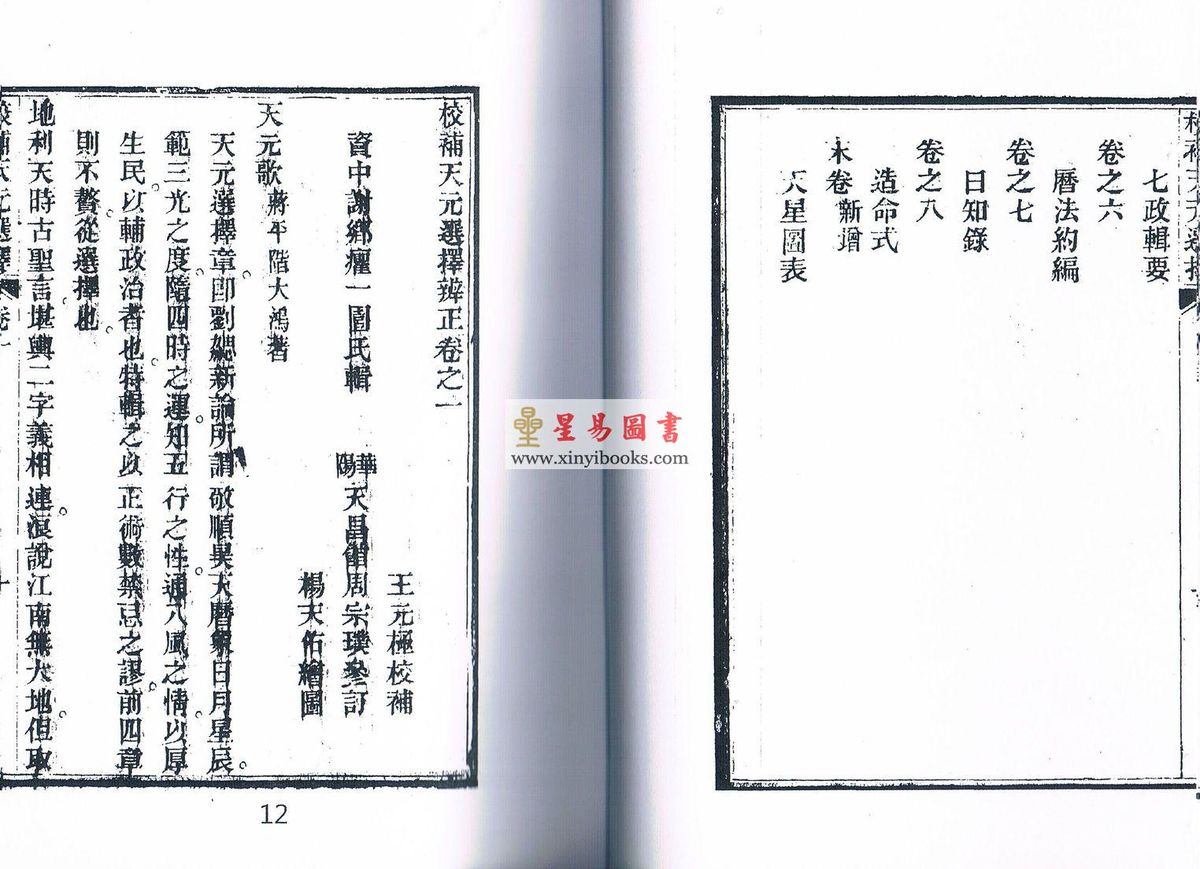 七政輯要
卷之六
曆法約編
卷之七
日知錄
卷之八
造命式
末卷 新增
天星圖表
校補天元選擇辨正卷之一
王元極校補
資中謝鄉癯一園氏輯 華陽天昌館周宗璞參訂
楊天佑繪圖
天元歌 蔣平階大鴻著
天元選擇章卽劉勰新論所謂敬順昊天曆象日月星辰
範三光之度隨四時之運知五行之性通八風之情以厚
生民以輔政治者也特輯之以正術數禁忌之謬前四章
則不贅從選擇也
地利天時古聖言堪輿二字義相連浪說江南無大地但取
星易圖書
www.xinyibooks.com
12